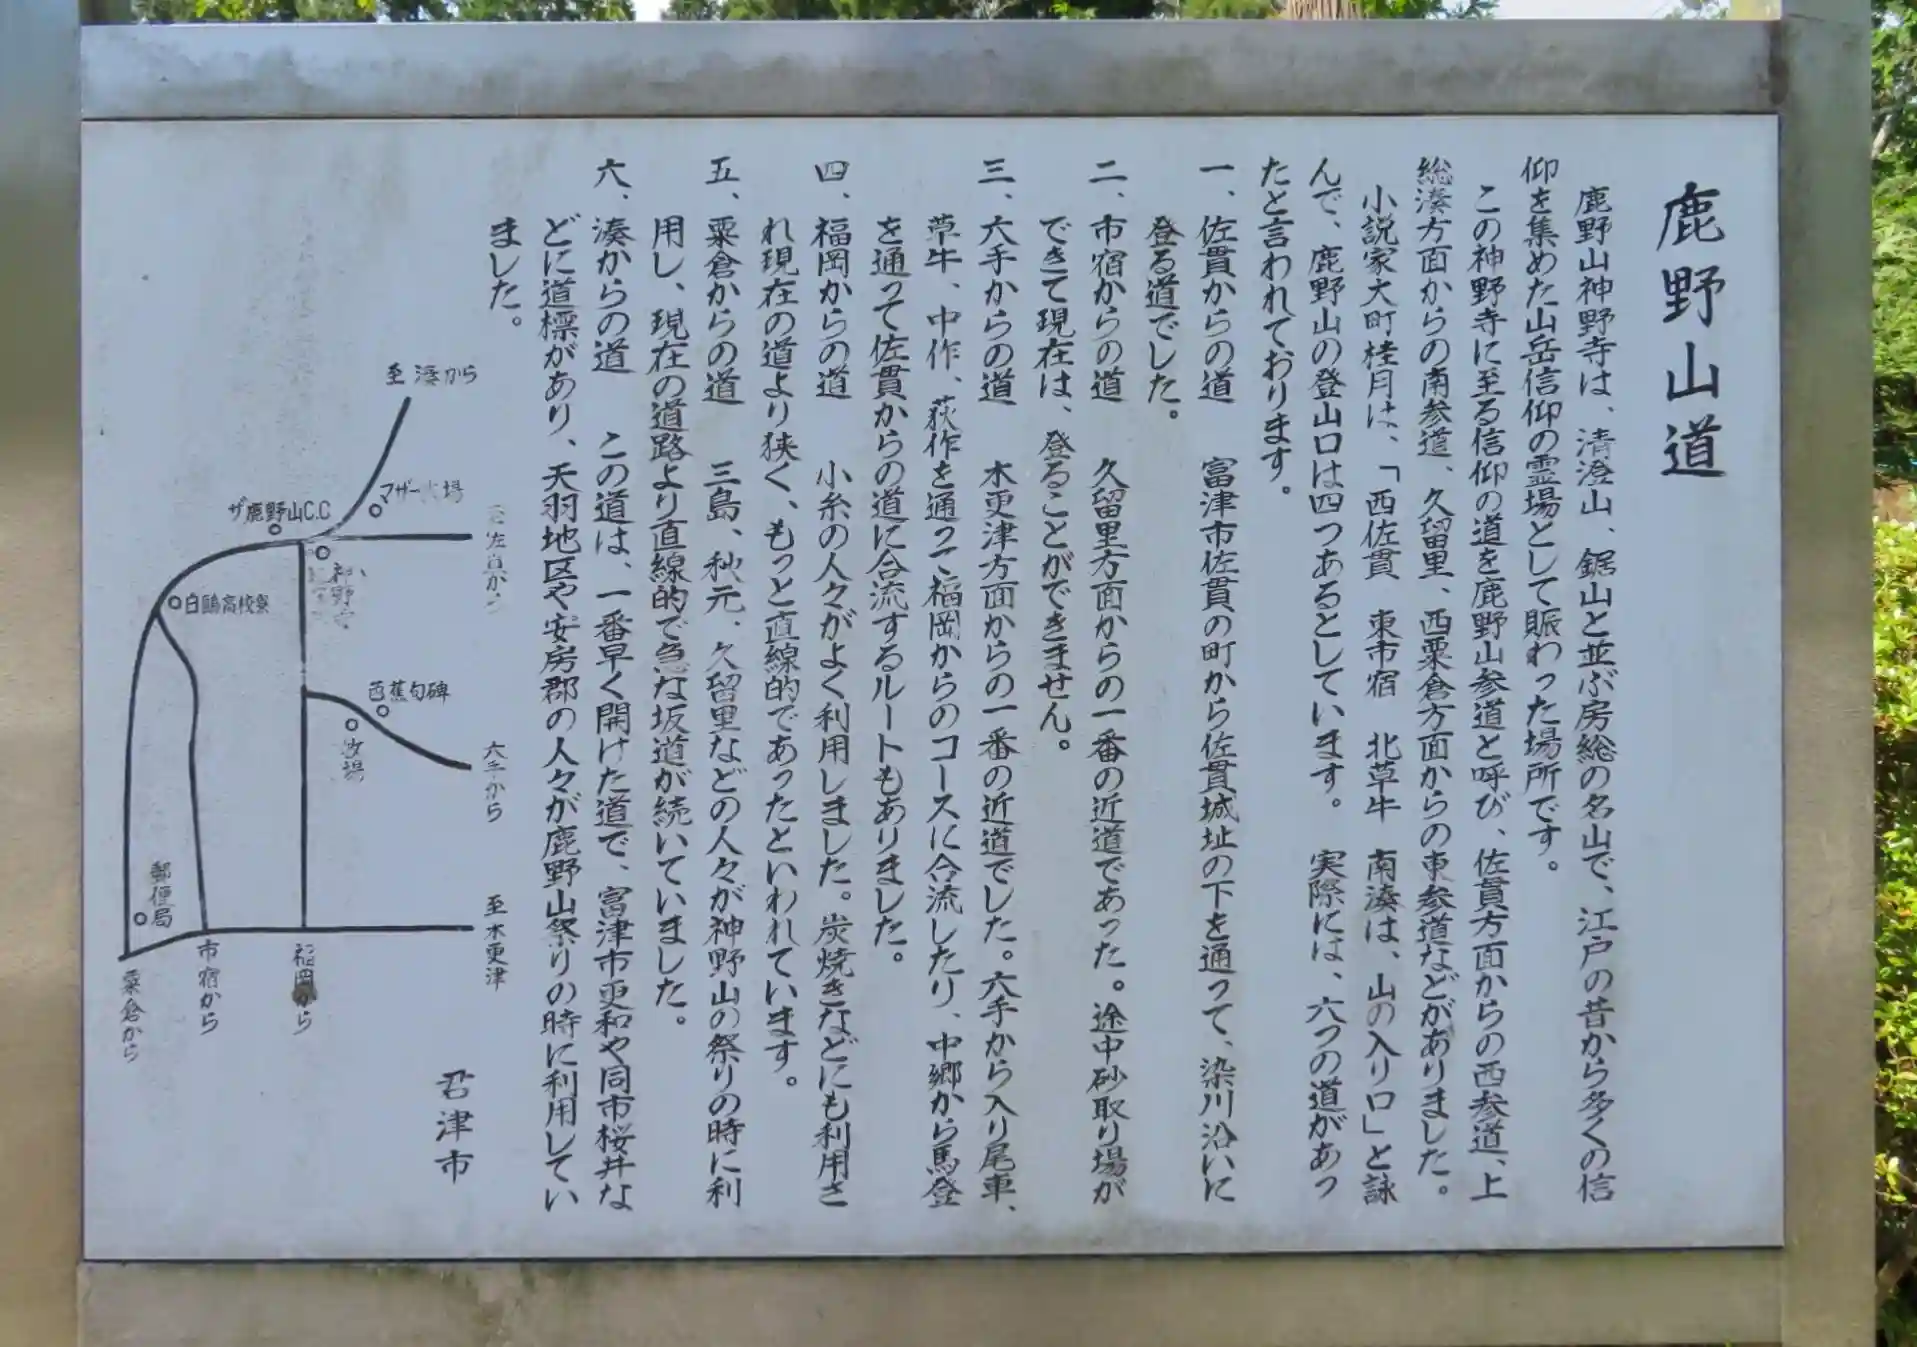 鹿野山道
鹿野山神野寺は、清澄山、鋸山と並ぶ房総の名山で、江戸の昔から多くの信
仰を集めた山岳信仰の霊場として賑わった場所です。
この神野寺に至る信仰の道を鹿野山参道と呼び、佐貫方面からの西参道、上
総湊方面からの南参道、久留里、西粟倉方面からの東参道などがありました。
小説家大町桂月は、「西佐貫 東市宿 北草牛 南湊は、山の入り口」と詠
んで、鹿野山の登山口は四つあるとしています。 実際には、六つの道があっ
たと言われております。
一、佐貫からの道 富津市佐貫の町から佐貫城址の下を通って、染川沿いに
登る道でした。
二、市宿からの道 久留里方面からの一番の近道であった。途中砂取り場が
できて現在は、登ることができません。
三、六手からの道 木更津方面からの一番の近道でした。六手から入り尾車、
草牛、中作、荻作を通って福岡からのコースに合流したり、中郷から馬登
を通って佐貫からの道に合流するルートもありました。
四、福岡からの道 小糸の人々がよく利用しました。炭焼きなどにも利用さ
れ現在の道より狭く、もっと直線的であったといわれています。
五、粟倉からの道 三島、秋元、久留里などの人々が神野山の祭りの時に利
用し、現在の道路より直線的で急な坂道が続いていました。
六、湊からの道 この道は、一番早く開けた道で、富津市更和や同市桜井な
どに道標があり、天羽地区や安房郡の人々が鹿野山祭りの時に利用してい
ました。
君津市
至 湊から
マザー牧場
ザ鹿野山C.C
佐貫から
神野寺
白鷗高校寮
芭蕉句碑
牧場
六手から
郵便局
至木更津
粟倉から
市宿から
福岡から